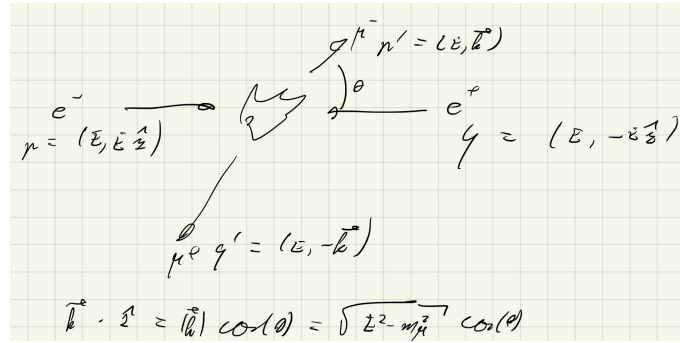 μ⁻ p' = (E, k⃗)
θ
e⁻
e⁺
p = (E, E ẑ)
q = (E, -E ẑ)
μ⁺ q' = (E, -k⃗)
k⃗ · ẑ = |k⃗| cos(θ) = √(E² - m_μ²) cos(θ)